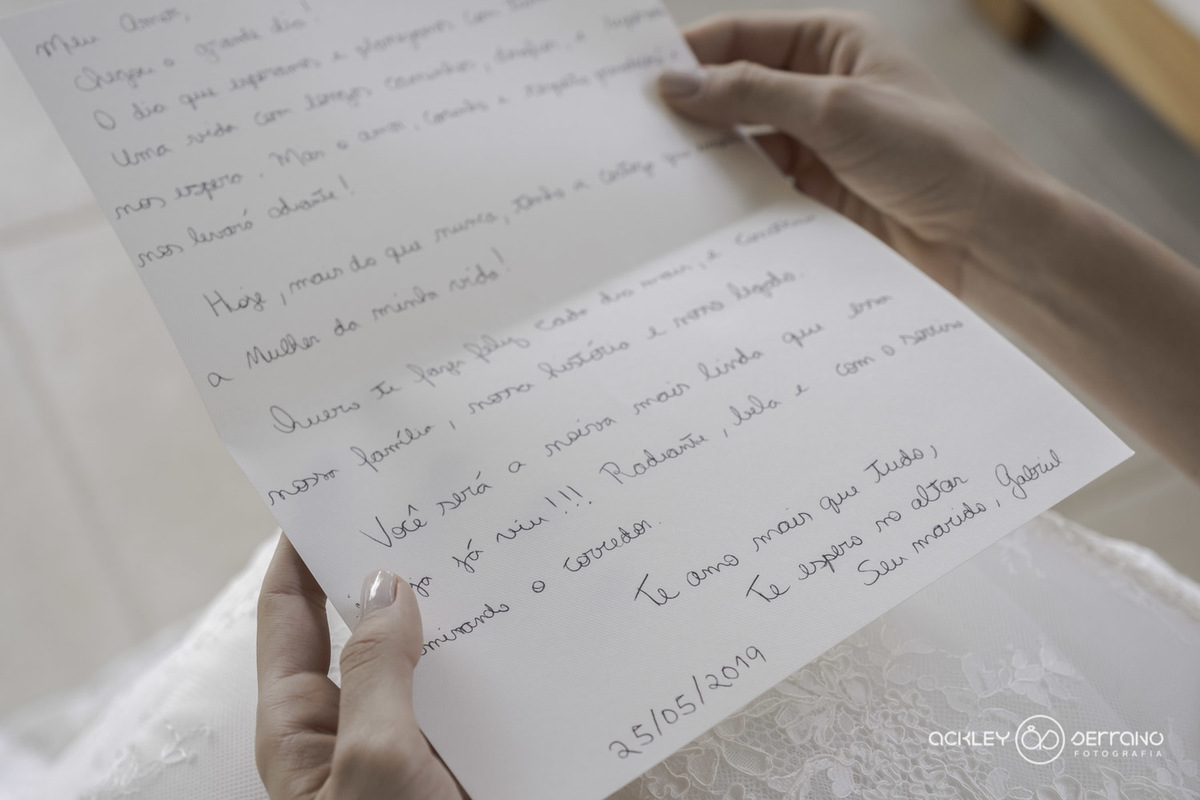 Meu amor,
Chegou o grande dia!
O dia que esperamos e planejamos com
Uma vida com longos caminhos, desafios, e
nos espera. Mas o amor, carinho e respeito
nos levará adiante!
Hoje, mais do que nunca, tenho a certeza que
a Mulher da minha vida!
Quero te fazer feliz cada dia mais, e construir
nossa família, nossa história e nosso legado.
Você será a noiva mais linda que essa
já viu!!! Radiante, bela e com o sorriso
o corredor.
Te amo mais que tudo,
Te espero no altar
Seu marido, Gabriel
25/05/2019
ACKLEY SERRANO
FOTOGRAFIA